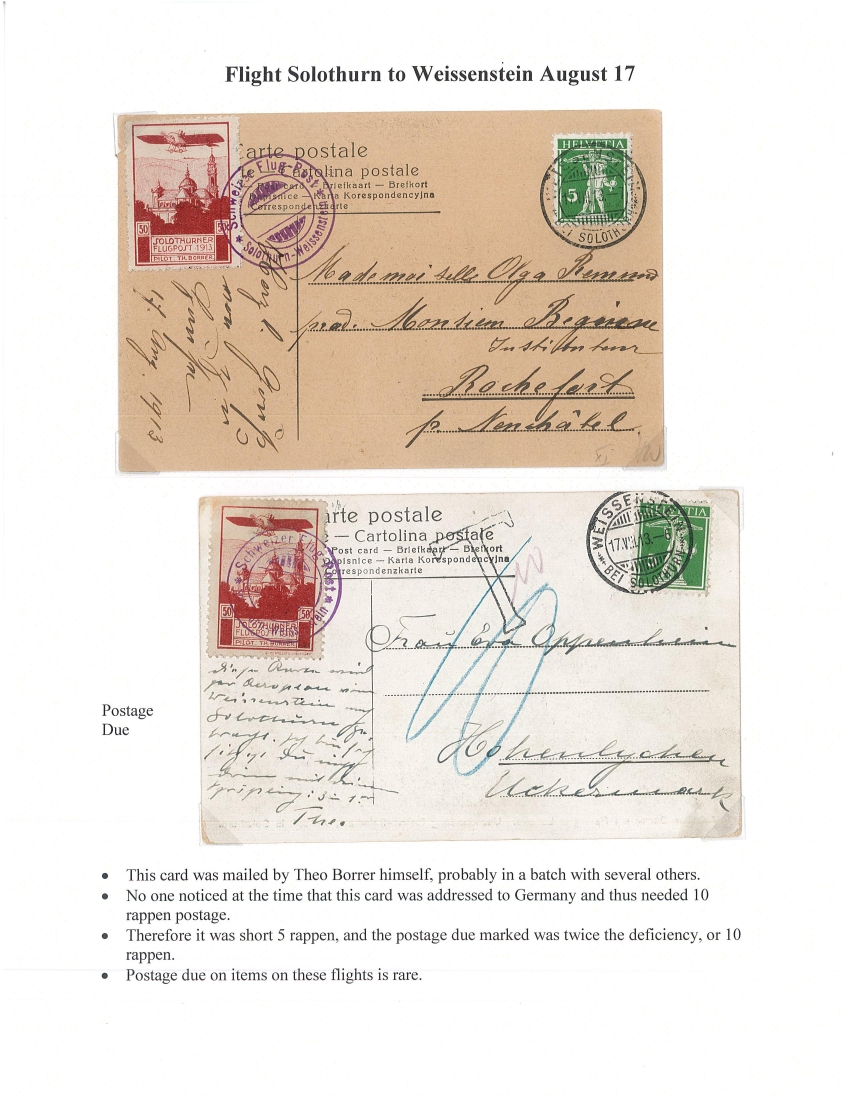 Flight Solothurn to Weissenstein August 17
Carte postale
Cartolina postale
card — Briefkaart — Brefkort
Karta Korespondencyjna
Correspondenzkarte
★ Schweizer Flug-Post ★
Solothurn-Weissenstein
50 50
SOLOTHURNER
FLUGPOST 1913
PILOT TH. BORRER
HELVETIA
5
BEI SOLOTHURN
Mademoiselle Olga Remund
prad. Monsieur Béguin
Instituteur
Rochefort
p. Neuchâtel.
17. Aug. 1913
arte postale
e — Cartolina postale
Post card — Briefkaart — Brefkort
opisnice — Karta Korespondencyjna
orrespondenzkarte
★ Schweizer Flug-Post ★
50 50
SOLOTHURNER
FLUGPOST 1913
PILOT TH. BORRER
WEISSENSTEIN
17.VIII.13.–6
BEI SOLOTHURN
HELVETIA
T
10
10
Frau Eva Oppenheim
Hohenlychen
Uckermark
Weissenstein
Solothurn
Theo.
Postage
Due
• This card was mailed by Theo Borrer himself, probably in a batch with several others.
• No one noticed at the time that this card was addressed to Germany and thus needed 10
rappen postage.
• Therefore it was short 5 rappen, and the postage due marked was twice the deficiency, or 10
rappen.
• Postage due on items on these flights is rare.